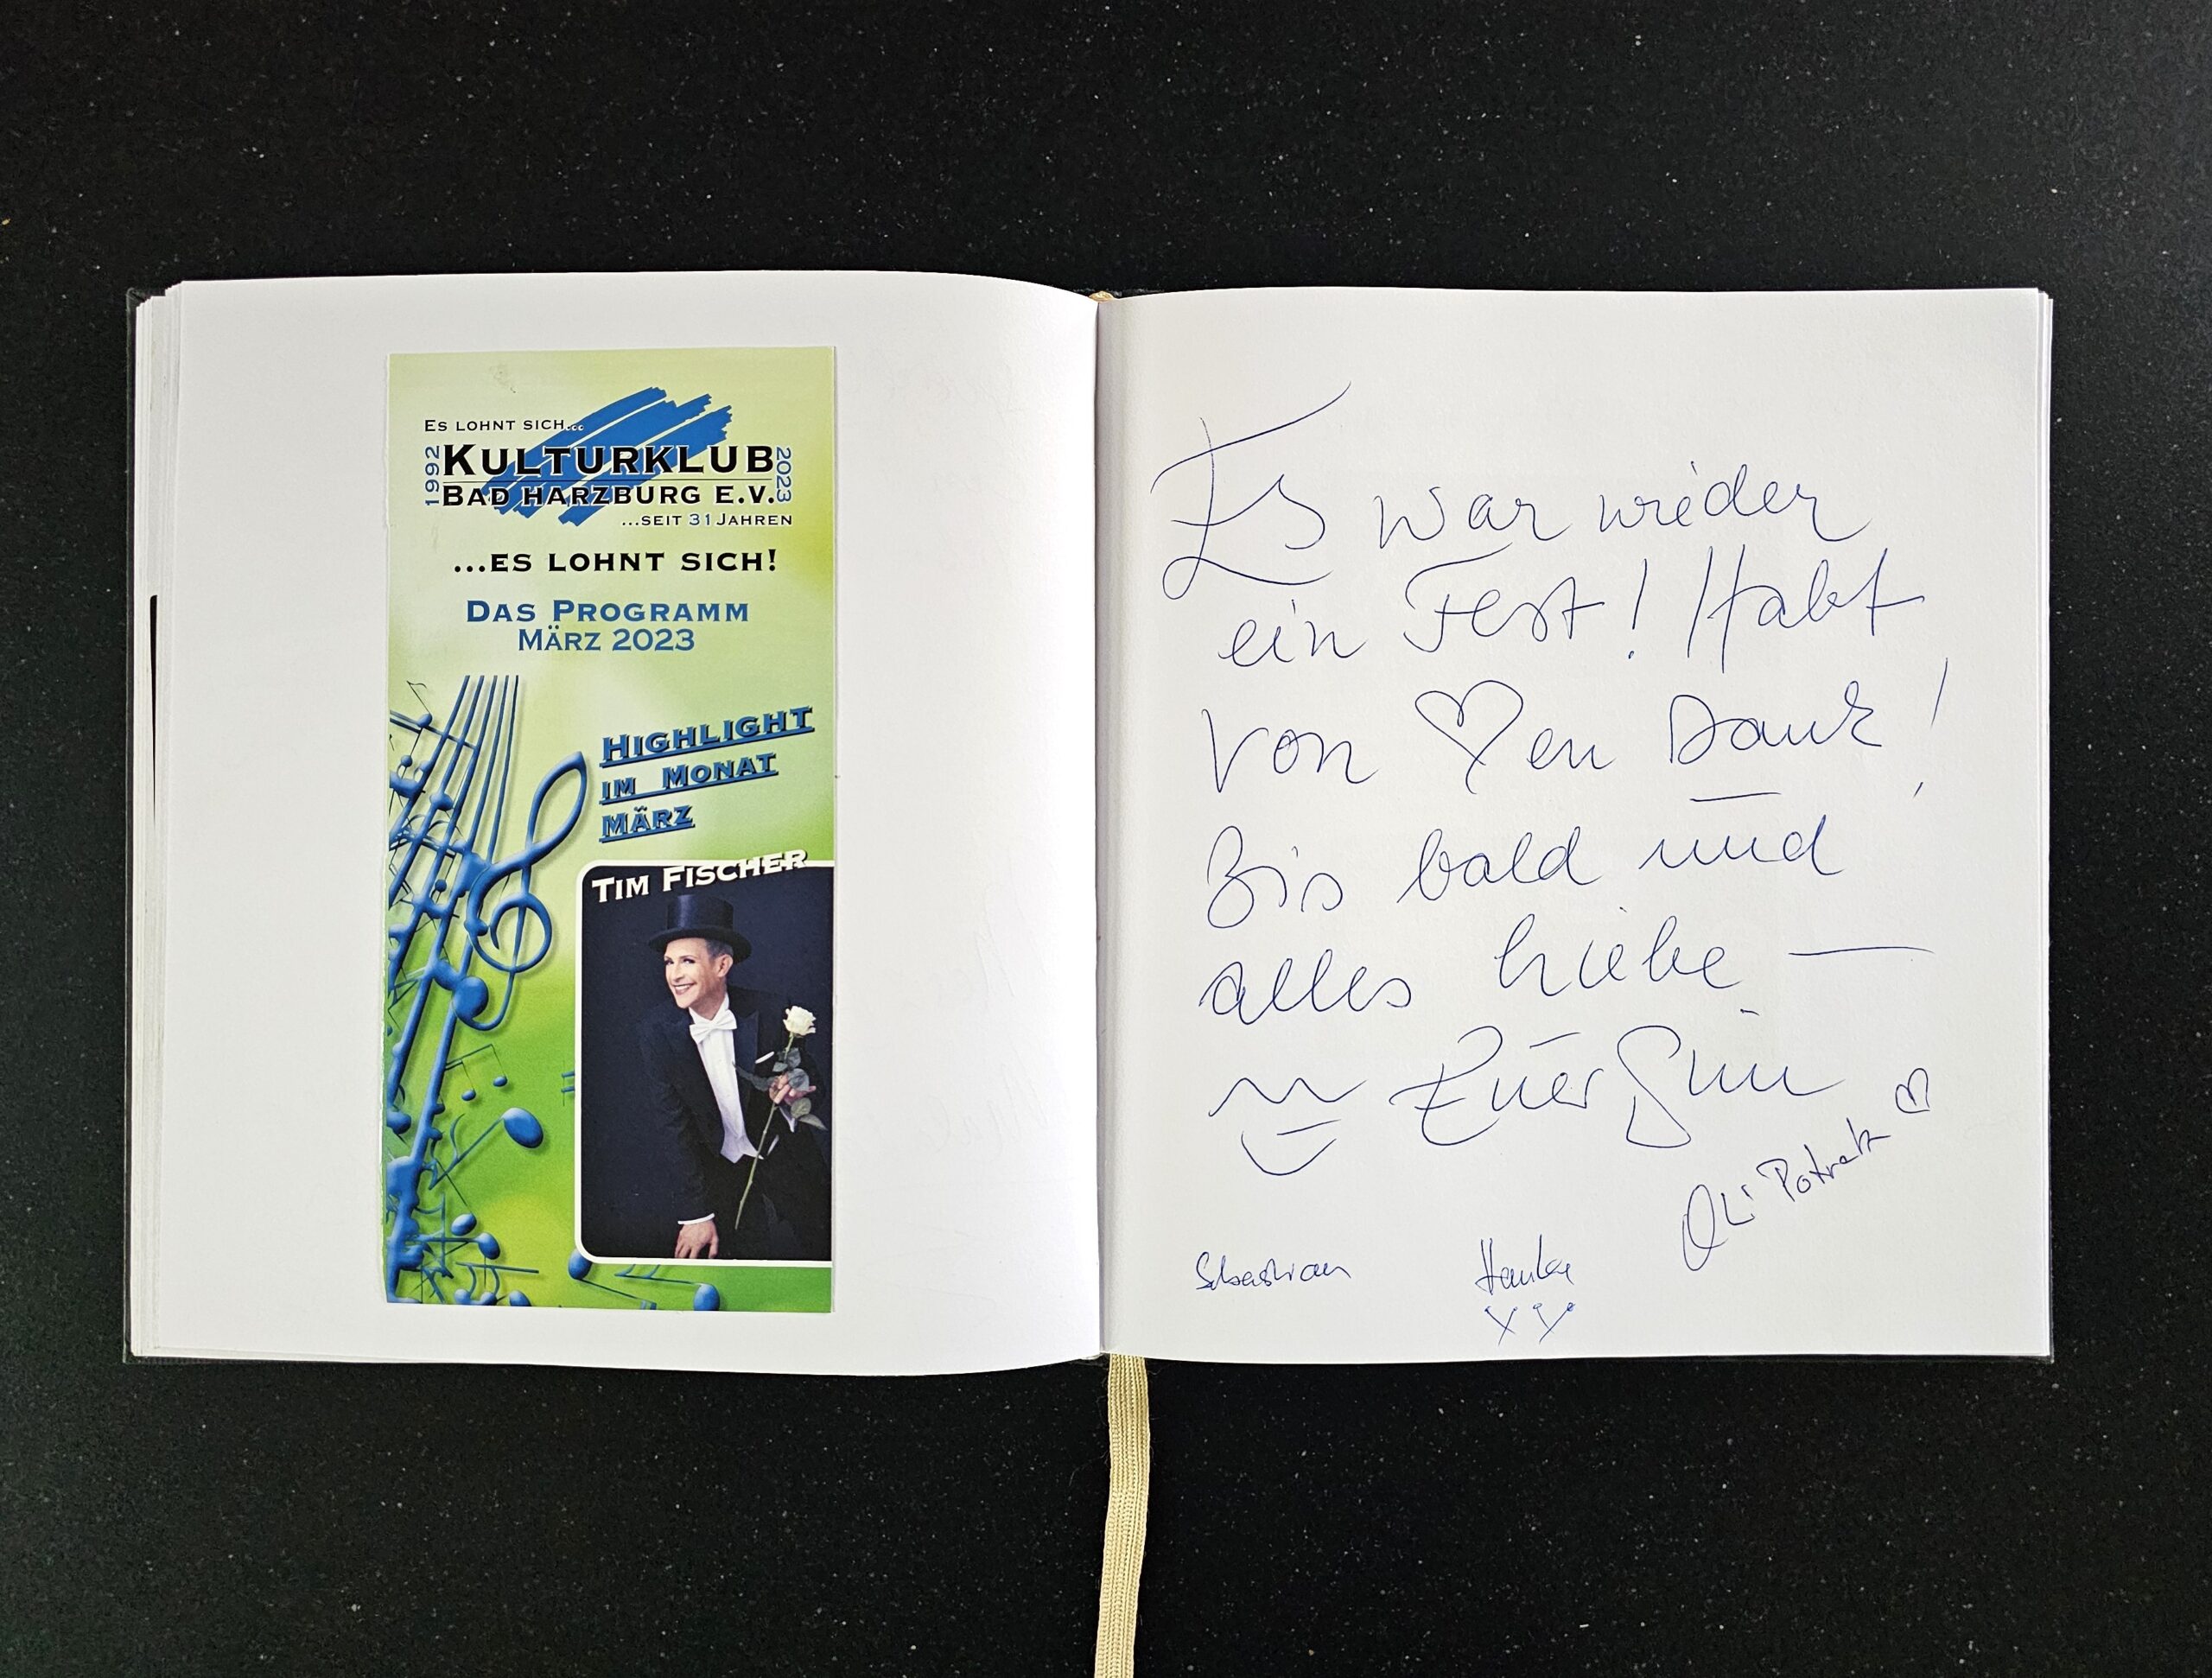 Es lohnt sich...
1992
Kulturklub
2023
Bad Harzburg e.V.
...seit 31 Jahren
...es lohnt sich!
Das Programm
März 2023
Highlight
im Monat
März
Tim Fischer
Es war wieder
ein Fest! Habt
von ♡en Dank!
Bis bald und
alles Liebe –
Euer Tim
Oli Potratz ♡
Sebastian
Hauke